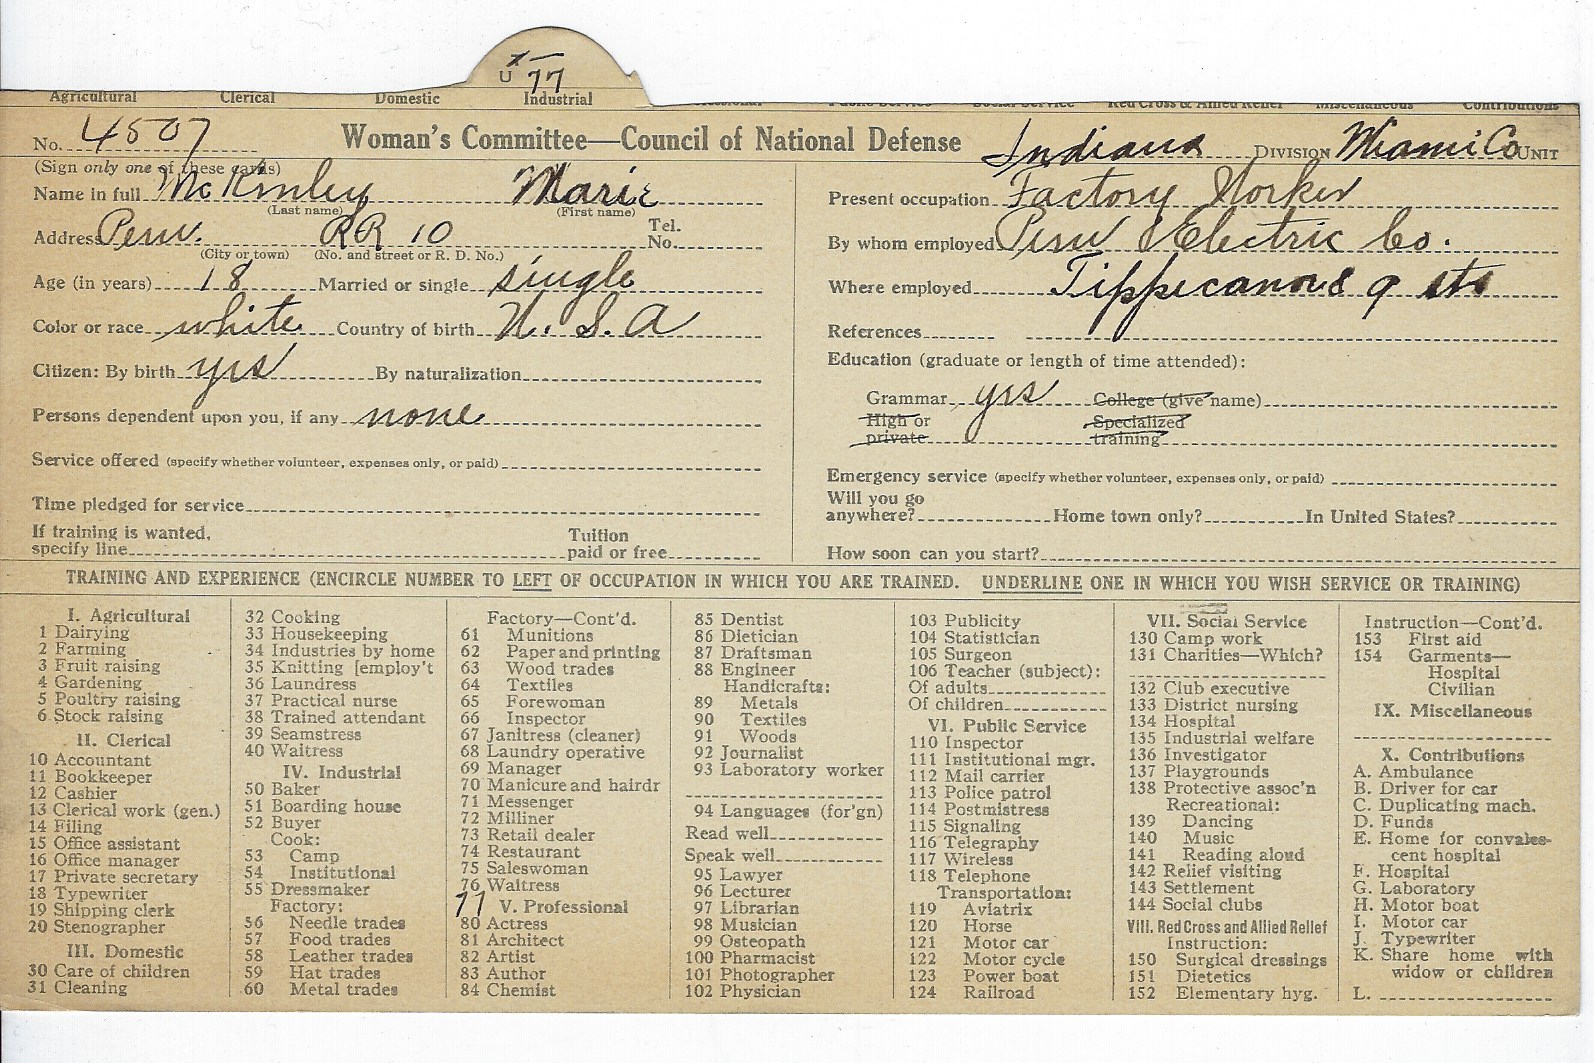 x —
U 77
Agricultural Clerical Domestic Industrial Public Service Social Service Red Cross & Allied Relief Miscellaneous Contributions
No. 4507 Woman's Committee—Council of National Defense Indiana DIVISION Miami Co UNIT
(Sign only one of these cards)
Name in full McKinley Marie
(Last name) (First name)
Address Peru. RR 10 Tel. No.
(City or town) (No. and street or R. D. No.)
Age (in years) 18 Married or single single
Color or race white Country of birth U. S. A
Citizen: By birth yes By naturalization
Persons dependent upon you, if any none
Service offered (specify whether volunteer, expenses only, or paid)
Time pledged for service
If training is wanted, specify line Tuition paid or free
Present occupation Factory Worker
By whom employed Peru Electric Co.
Where employed Tippecanoe & 9 sts
References
Education (graduate or length of time attended):
Grammar yes College (give name)
High or private Specialized training
Emergency service (specify whether volunteer, expenses only, or paid)
Will you go anywhere? Home town only? In United States?
How soon can you start?
TRAINING AND EXPERIENCE (ENCIRCLE NUMBER TO LEFT OF OCCUPATION IN WHICH YOU ARE TRAINED. UNDERLINE ONE IN WHICH YOU WISH SERVICE OR TRAINING)
I. Agricultural
1 Dairying
2 Farming
3 Fruit raising
4 Gardening
5 Poultry raising
6 Stock raising
II. Clerical
10 Accountant
11 Bookkeeper
12 Cashier
13 Clerical work (gen.)
14 Filing
15 Office assistant
16 Office manager
17 Private secretary
18 Typewriter
19 Shipping clerk
20 Stenographer
III. Domestic
30 Care of children
31 Cleaning
32 Cooking
33 Housekeeping
34 Industries by home
35 Knitting [employ't
36 Laundress
37 Practical nurse
38 Trained attendant
39 Seamstress
40 Waitress
IV. Industrial
50 Baker
51 Boarding house
52 Buyer
Cook:
53 Camp
54 Institutional
55 Dressmaker
Factory:
56 Needle trades
57 Food trades
58 Leather trades
59 Hat trades
60 Metal trades
Factory—Cont'd.
61 Munitions
62 Paper and printing
63 Wood trades
64 Textiles
65 Forewoman
66 Inspector
67 Janitress (cleaner)
68 Laundry operative
69 Manager
70 Manicure and hairdr
71 Messenger
72 Milliner
73 Retail dealer
74 Restaurant
75 Saleswoman
76 Waitress
77 V. Professional
80 Actress
81 Architect
82 Artist
83 Author
84 Chemist
85 Dentist
86 Dietician
87 Draftsman
88 Engineer
Handicrafts:
89 Metals
90 Textiles
91 Woods
92 Journalist
93 Laboratory worker
94 Languages (for'gn)
Read well
Speak well
95 Lawyer
96 Lecturer
97 Librarian
98 Musician
99 Osteopath
100 Pharmacist
101 Photographer
102 Physician
103 Publicity
104 Statistician
105 Surgeon
106 Teacher (subject):
Of adults
Of children
VI. Public Service
110 Inspector
111 Institutional mgr.
112 Mail carrier
113 Police patrol
114 Postmistress
115 Signaling
116 Telegraphy
117 Wireless
118 Telephone
Transportation:
119 Aviatrix
120 Horse
121 Motor car
122 Motor cycle
123 Power boat
124 Railroad
VII. Social Service
130 Camp work
131 Charities—Which?
132 Club executive
133 District nursing
134 Hospital
135 Industrial welfare
136 Investigator
137 Playgrounds
138 Protective assoc'n
Recreational:
139 Dancing
140 Music
141 Reading aloud
142 Relief visiting
143 Settlement
144 Social clubs
VIII. Red Cross and Allied Relief
Instruction:
150 Surgical dressings
151 Dietetics
152 Elementary hyg.
Instruction—Cont'd.
153 First aid
154 Garments—
Hospital
Civilian
IX. Miscellaneous
X. Contributions
A. Ambulance
B. Driver for car
C. Duplicating mach.
D. Funds
E. Home for convales-
cent hospital
F. Hospital
G. Laboratory
H. Motor boat
I. Motor car
J. Typewriter
K. Share home with
widow or children
L.